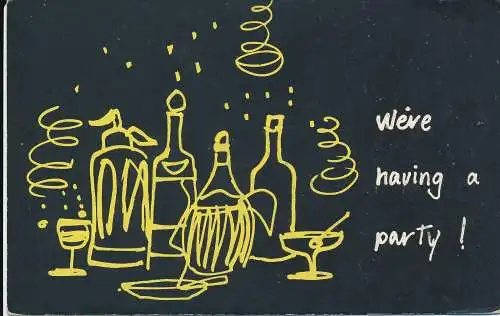 We're
having a
party !